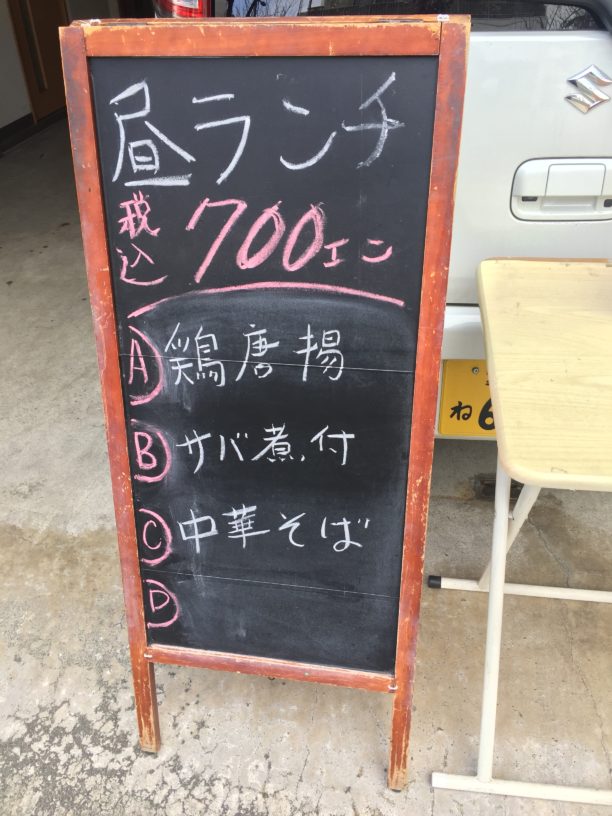 昼ランチ
税込 700エン
A 鶏唐揚
B サバ煮付
C 中華そば
D
ね6